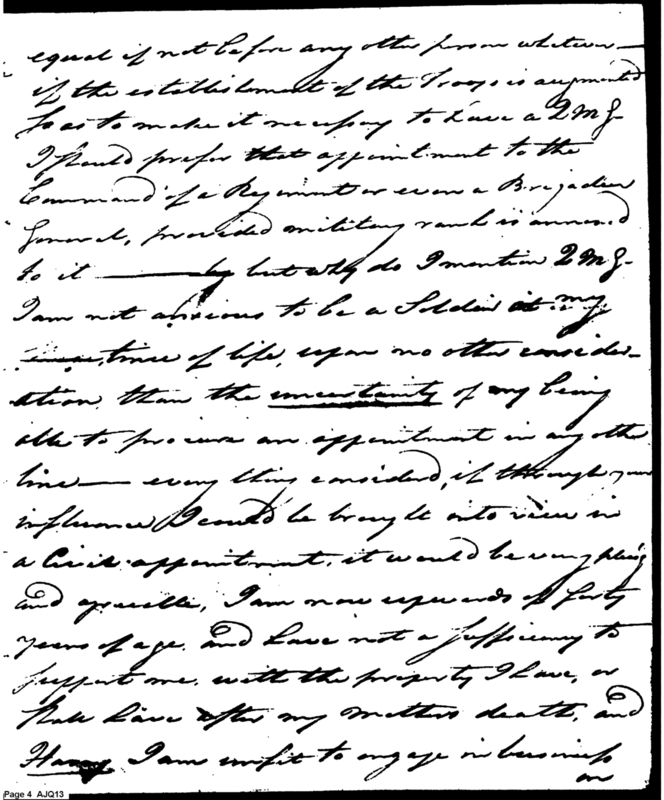 equal if not before any other person whatever —
if the establishment of the Troops is augmented
so as to make it necessary to have a Q M G.
I should prefer that appointment to the
Command of a Regiment or even a Brigadier
General, provided military rank is annexed
to it — but why do I mention Q M G.
I am not anxious to be a Soldier at my
time of life, upon no other consider-
ation, than the uncertainty of my being
able to procure an appointment in any other
line — every thing considered, if through your
influence I could be brought into view in
a Civil appointment, it would be very pleasing
and agreeable, I am now upwards of forty
years of age, and have not a sufficiency to
support me, with the property I have, or
shall have after my mothers death, and
I am unfit to engage in business
on
Page 4 AJQ13